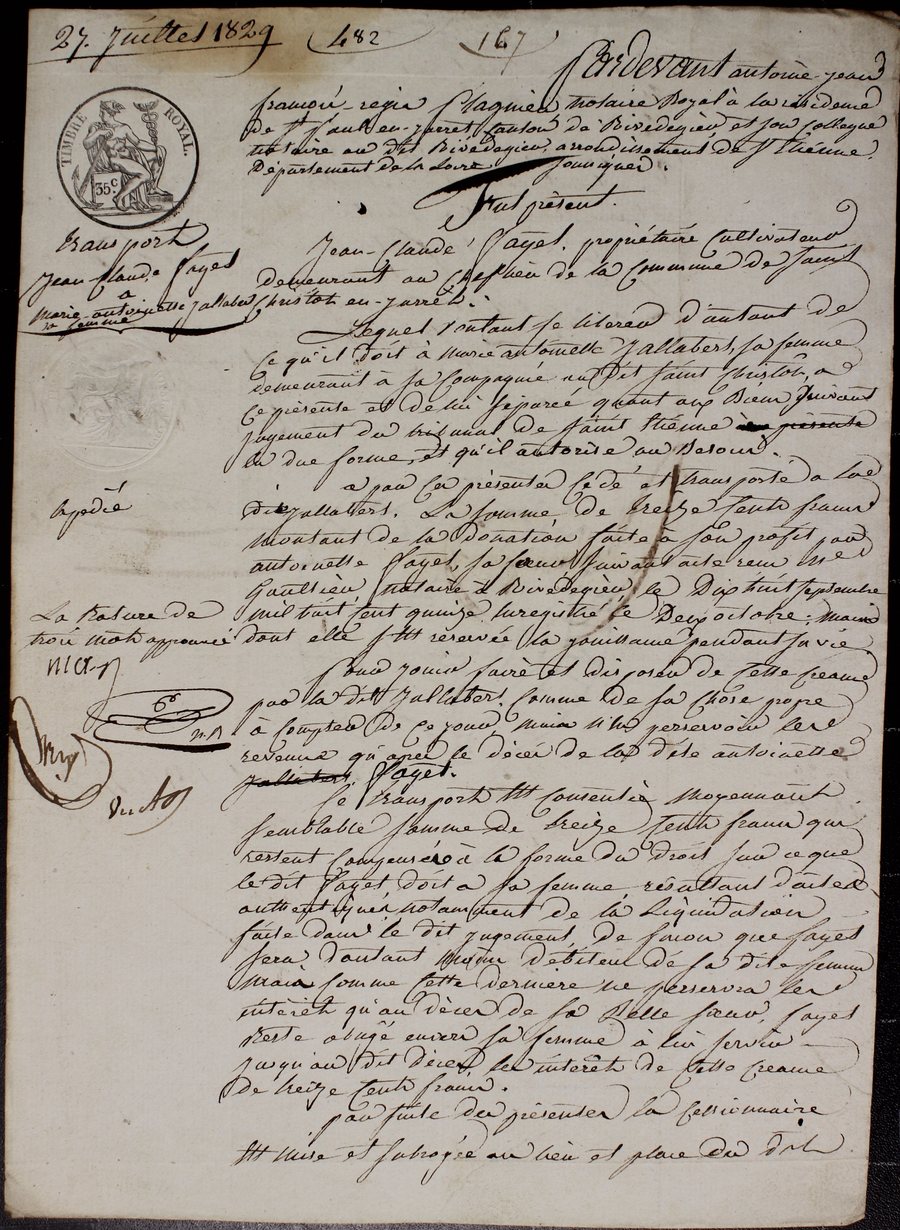 27. Juillet 1829 482 167
Pardevant antoine jean
françois régis Flaguier notaire Royal à la résidence
de St Paul en-jarret, canton de Rivedegier, et son collegue
notaire au dit Rivedegier, arrondissement de St Etienne,
Département de la Loire soussignés.
TIMBRE ROYAL.
35 c.
Fut présent.
transport
Jean-Claude Fayet
à
Marie-antoinette Jallabert
sa femme
Jean-Claude Fayet, propriétaire cultivateur
demeurant au chef lieu de la commune de Saint
Christot en-jarrêt.
Lequel voulant se liberer d'autant de
ce qu'il doit à Marie antoinette Jallabert, sa femme
demeurant à sa compagnie au dit Saint Christot, a
ce présente et de lui séparée quant aux Biens suivant
jugement du tribunal de Saint Etienne en présente
en due forme, et qu'il autorise au Besoin.
a par ces présentes cédé et transporté a la
dite Jallabert. La somme de treize cents francs
Expédié
montant de la donation faite à son profit par
antoinette Fayet, sa sœur suivant acte reçu Me
Gaultier, notaire à Rivedegier, le Dix huit septembre
mil huit cent quinze enregistré le Deux octobre, mais
dont elle s'est réservée la jouissance pendant sa vie.
La Rature de
trois mots approuvée
Pour jouir faire et disposer de cette creance
par la dite Jallabert, comme de sa chose propre
à compter de ce jour mais n'en percevoir les
revenus qu'après le décès de la dite antoinette
Jallabert, Fayet.
Le transport est consentie moyennant
semblable somme de treize cents francs qui
restent compensés à la forme du droit sur ce que
le dit Fayet doit a sa femme résultant d'actes
authentiques, notamment de la Liquidation
faite dans le dit jugement, de façon que Fayet
sera d'autant moins débiteur de sa dite femme
mais comme cette derniere ne percevra les
intérêt qu'au décès de sa Belle sœur, Fayet
Reste obligé envers sa femme à lui servir
jusqu'au dit décès, les intérêt de cette creance
de treize cents francs.
par suite des présentes la cessionnaire
est mise et subrogée au lieu et place du dit